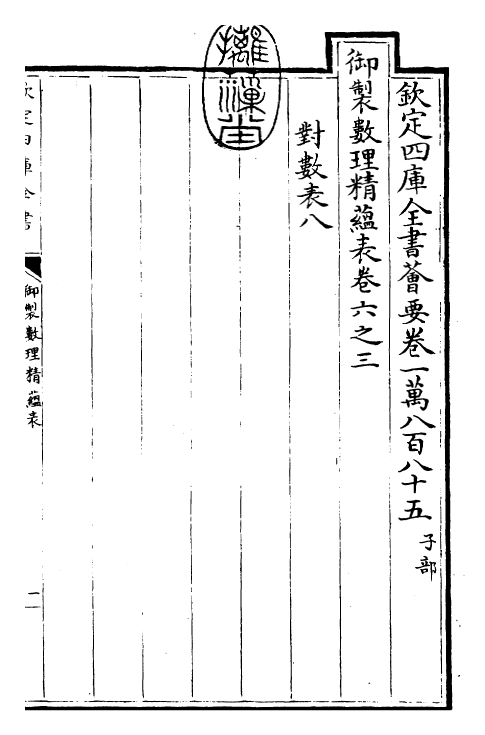 欽定四庫全書薈要卷一萬八百八十五 子部
御製數理精蘊表卷六之三
對數表八
欽定四庫全書
御製數理精蘊表